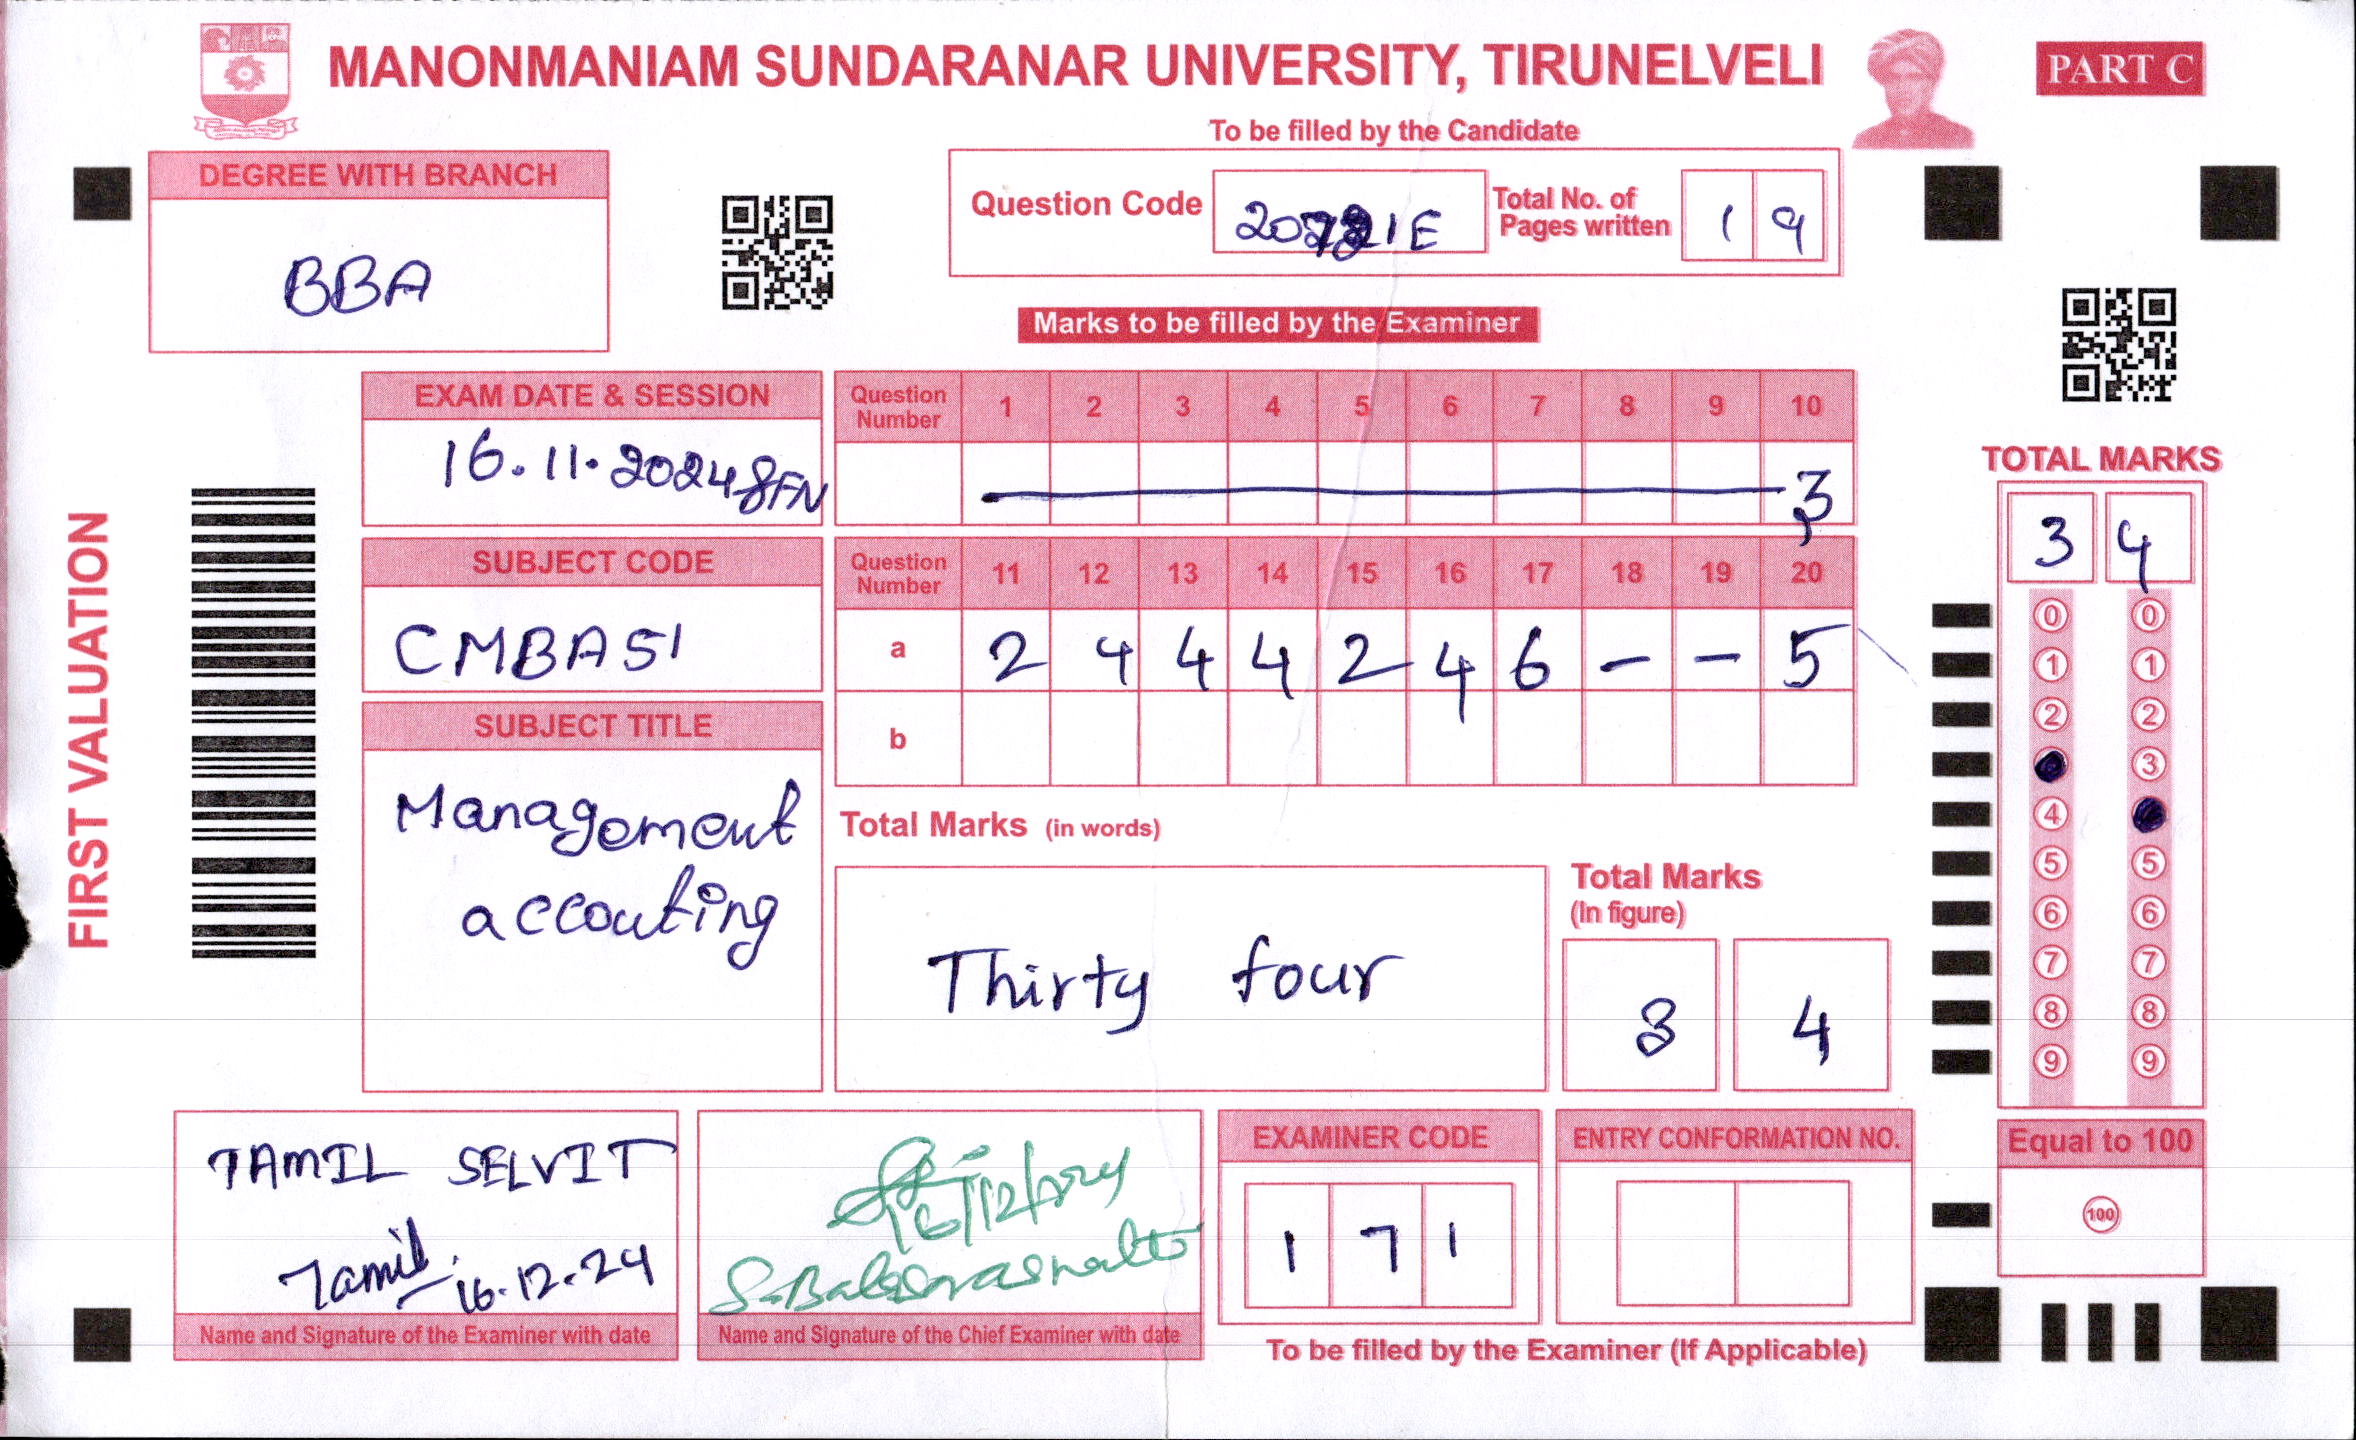 MANONMANIAM SUNDARANAR UNIVERSITY, TIRUNELVELI
PART C
To be filled by the Candidate
DEGREE WITH BRANCH
BBA
Question Code
Total No. of Pages written 1 9
Marks to be filled by the Examiner
EXAM DATE & SESSION
16.11.2024 & FN
Question Number 1 2 3 4 5 6 7 8 9 10
3
SUBJECT CODE
CMBA51
Question Number 11 12 13 14 15 16 17 18 19 20
a 2 4 4 4 2 4 6 - - 5
b
SUBJECT TITLE
Management
accouting
Total Marks (in words)
Thirty four
Total Marks
(In figure)
3 4
FIRST VALUATION
TOTAL MARKS
3 4
0 0
1 1
2 2
3
4
5 5
6 6
7 7
8 8
9 9
Equal to 100
100
TAMIL SELVI T
Tamil
16.12.24
Name and Signature of the Examiner with date
16/12/2024
Name and Signature of the Chief Examiner with date
EXAMINER CODE
1 7 1
ENTRY CONFORMATION NO.
To be filled by the Examiner (If Applicable)